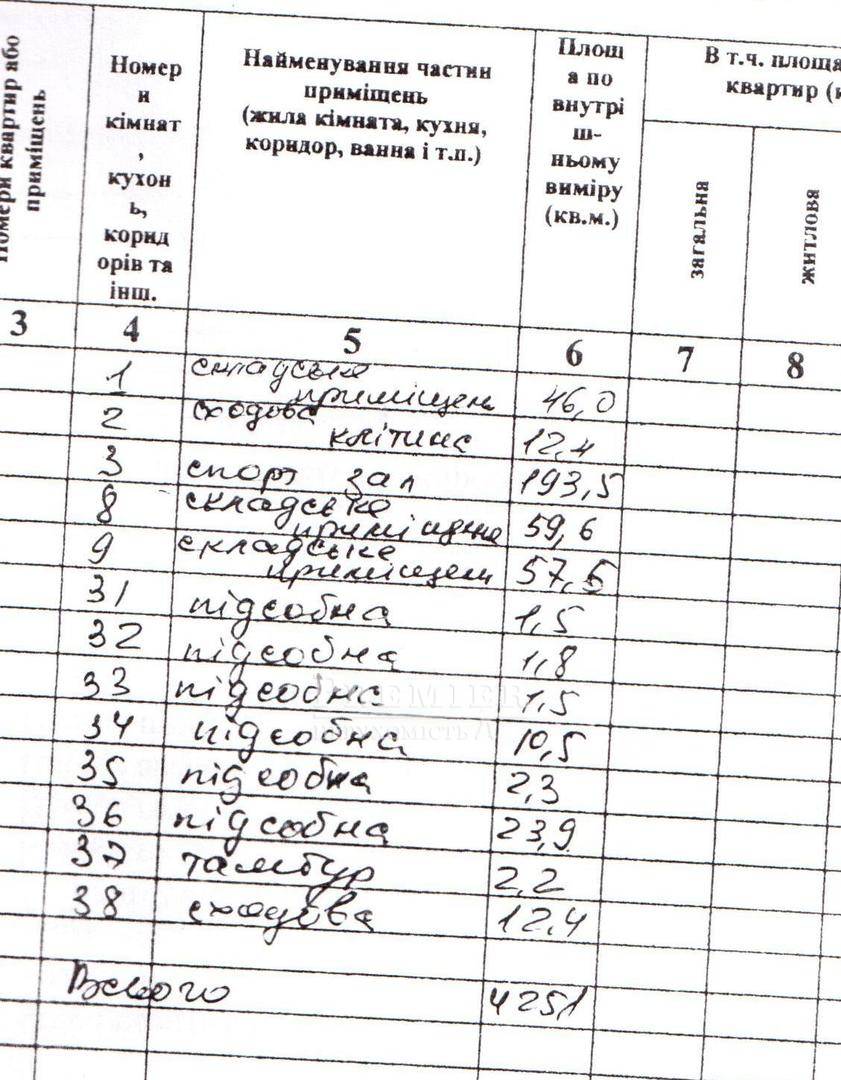 Номери квартир або
приміщень
Номер
и
кімнат
,
кухон
ь,
корид
орів та
інш.
Найменування частин
приміщень
(жила кімната, кухня,
коридор, ванна і т.п.)
Площ
а по
внутрі
ш-
ньому
виміру
(кв.м.)
В т.ч. площа
квартир (к
загальна
житлова
3 4 5 6 7 8
1 складське
приміщенн 46,0
2 сходова
клітина 12,4
3 спорт зал 193,5
8 складське
приміщенн 59,6
9 складське
приміщенн 57,5
31 підсобна 1,5
32 підсобна 1,8
33 підсобна 1,5
34 підсобна 10,5
35 підсобна 2,3
36 підсобна 23,9
37 тамбур 2,2
38 сходова 12,4
Всього 425,1
PREMIER
нерухомість